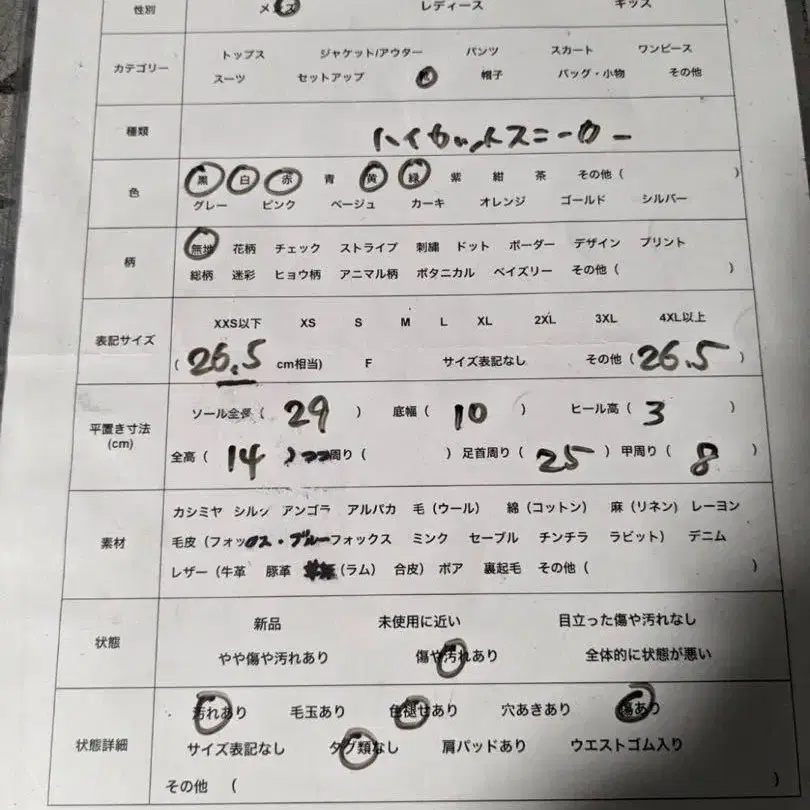 性別 メンズ レディース キッズ
カテゴリー トップス ジャケット/アウター パンツ スカート ワンピース
スーツ セットアップ 靴 帽子 バッグ・小物 その他
種類 ハイカットスニーカー
色 黒 白 赤 青 黄 緑 紫 紺 茶 その他 ( )
グレー ピンク ベージュ カーキ オレンジ ゴールド シルバー
柄 無地 花柄 チェック ストライプ 刺繍 ドット ボーダー デザイン プリント
総柄 迷彩 ヒョウ柄 アニマル柄 ボタニカル ペイズリー その他 ( )
表記サイズ XXS以下 XS S M L XL 2XL 3XL 4XL以上
( 26.5 cm相当) F サイズ表記なし その他 ( 26.5 )
平置き寸法 (cm) ソール全長 ( 29 ) 底幅 ( 10 ) ヒール高 ( 3 )
全高 ( 14 周り ( ) 足首周り ( 25 ) 甲周り ( 8 )
素材 カシミヤ シルク アンゴラ アルパカ 毛 (ウール) 綿 (コットン) 麻 (リネン) レーヨン
毛皮 (フォックス・ブルーフォックス ミンク セーブル チンチラ ラビット) デニム
レザー (牛革 豚革 (ラム) 合皮) ボア 裏起毛 その他 ( )
状態 新品 未使用に近い 目立った傷や汚れなし
やや傷や汚れあり 傷や汚れあり 全体的に状態が悪い
状態詳細 汚れあり 毛玉あり 色褪せあり 穴あきあり 傷あり
サイズ表記なし タグ類なし 肩パッドあり ウエストゴム入り
その他 ( )